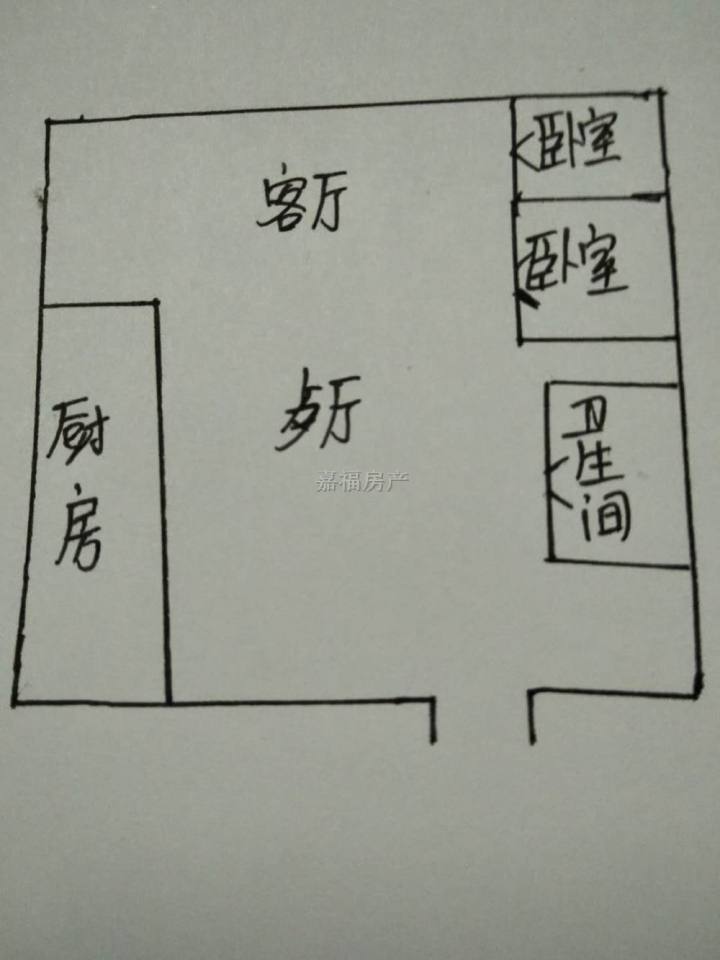 卧室
客厅
卧室
歺厅
厨房
卫生间
嘉福房产